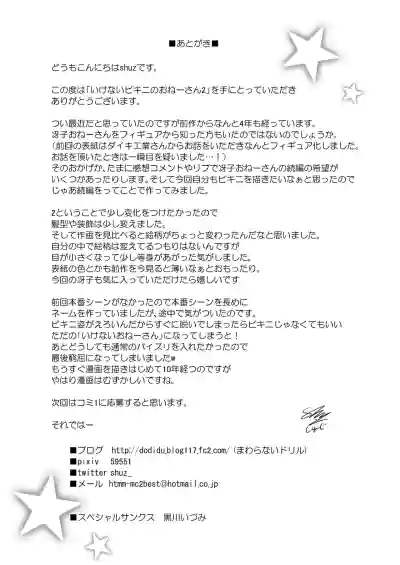 ■あとがき■
どうもこんにちはshuzです。
この度は「いけないビキニのおねーさん2」を手にとっていただき
ありがとうございます。
つい最近だと思っていたのですが前作からなんと4年も経っています。
冴子おねーさんをフィギュアから知った方もいたのではないのでしょうか。
(前回の表紙はダイキ工業さんからお話をいただきなんとフィギュア化しました。
お話を頂いたときは一瞬目を疑いました…！)
そのおかげか、たまに感想コメントやリプで冴子おねーさんの続編の希望が
いくつかあったりします。そして今回自分もビキニを描きたいなぁと思ったので
じゃあ続編をってことで作ってみました。
2ということで少し変化をつけたかったので
髪型や装飾は少し変えました。
そして作画を見比べると絵柄がちょっと変わったんだなと思いました。
自分の中で絵柄は変えてるつもりはないんですが
目が小さくなって少し等身があがった気がしました。
表紙の色とかも前作を今見ると薄いなぁとおもったり。
今回の冴子も気に入っていただけたら嬉しいです
前回本番シーンがなかったので本番シーンを長めに
ネームを作っていましたが、途中で気がついたのです。
ビキニ姿がえろいんだからすぐに脱いでしまったらビキニじゃなくてもいい
ただの「いけないおねーさん」になってしまうと！
あとどうしても通常のパイズリを入れたかったので
最後窮屈になってしまいましたw
もうすぐ漫画を描きはじめて10年経つのですが
やはり漫画はむずかしいですね。
次回はコミ1に応募すると思います。
それではー
■ブログ http://dodidu.blog117.fc2.com/ (まわらないドリル)
■pixiv 59551
■twitter shuz_
■メール htmm-mc2best@hotmail.co.jp
■スペシャルサンクス 黒川いづみ